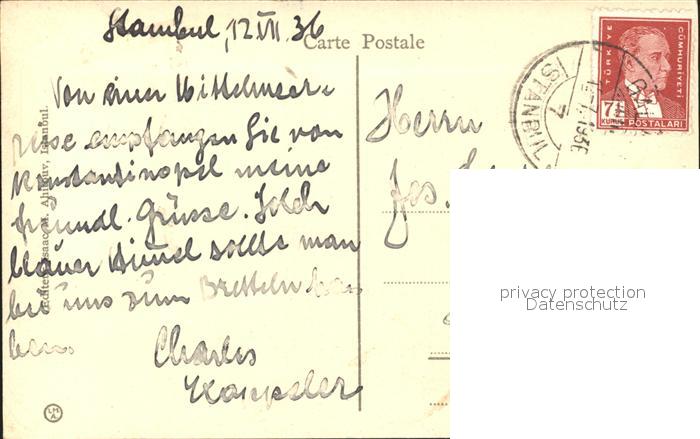 Stambul, 12.VII.36
Carte Postale
Von einer Mittelmeer-
reise empfangen Sie von
Konstantinopel meine
freundl. Grüsse. Solch
blauer Himmel sollte man
bei uns zum Bretteln ha-
ben.
Charles
Herrn
Jos.
Editeur Isaac M. Ahitouv, Istanbul.
TÜRKİYE
CÜMHURİYETİ
7½
KURUŞ POSTALARI
ISTANBUL
7
1936
privacy protection
Datenschutz